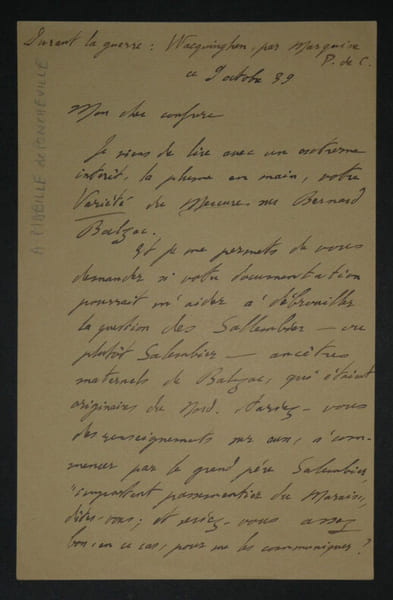 Durant la guerre : Wacquinghen, par Marquise
P. de C.
ce 9 octobre 39
A. MABILLE de PONCHEVILLE
Mon cher confrère
Je viens de lire avec un extrême
intérêt, la plume en main, votre
Variété du Mercure sur Bernard
Balzac.
Et je me permets de vous
demander si votre documentation
pourrait m'aider à débrouiller
la question des Sallembier — ou
plutôt Salembier — ancêtres
maternels de Balzac, qui étaient
originaires du Nord. Auriez-vous
des renseignements sur eux, à com-
mencer par le grand père Salembier,
"important passementier du Marais",
dites-vous ; et seriez-vous assez
bon, en ce cas, pour me les communiquer ?